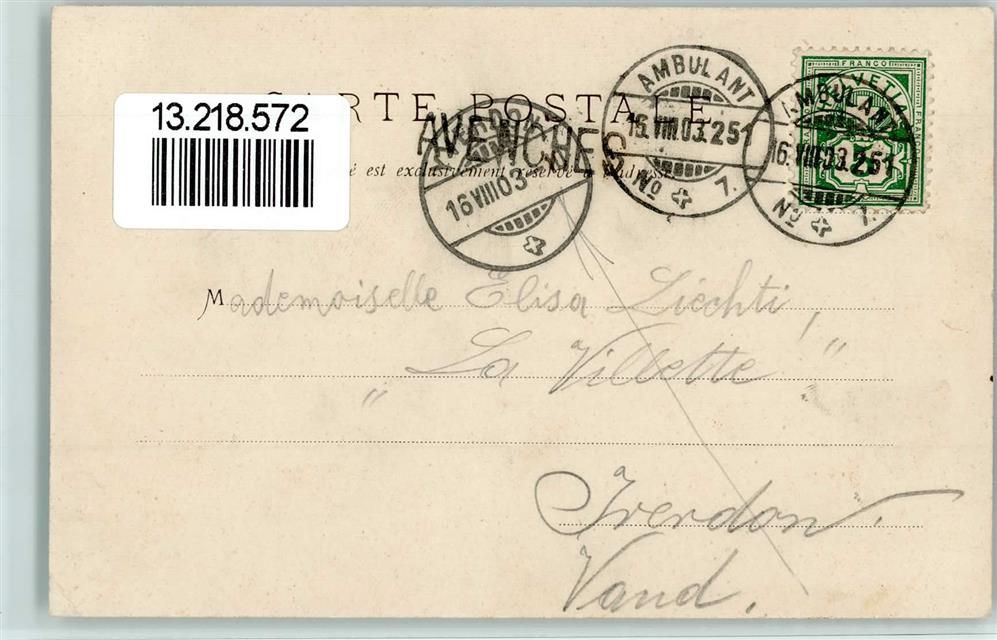 13.218.572
CARTE POSTALE
é est exclusivement réservé à l'adresse
AVENCHES
YVERDON
16 VIII 03
AMBULANT
16.VIII 03.251
No 7.
FRANCO
HELVETIA
FRANCO
5
AMBULANT
16.VIII 03.251
No 7.
Mademoiselle Elisa Liechti,
„La Villette"
Yverdon.
Vaud.